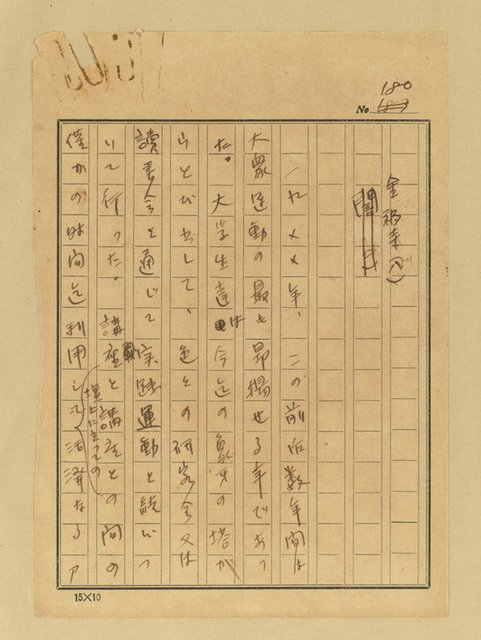 180
No. 183
金福寺(八)
一九××年、この前后数年間は
大衆運動の最も昂揚せる年であっ
た。大学生達は今迄の象牙の塔か
らとび出して、色々の研究会又は
讀書会を通じて実践運動を続けつ
いて行った。講座と講座との間の
壇上に立っての
僅かの時間迄利用して活溌なるア
15×10